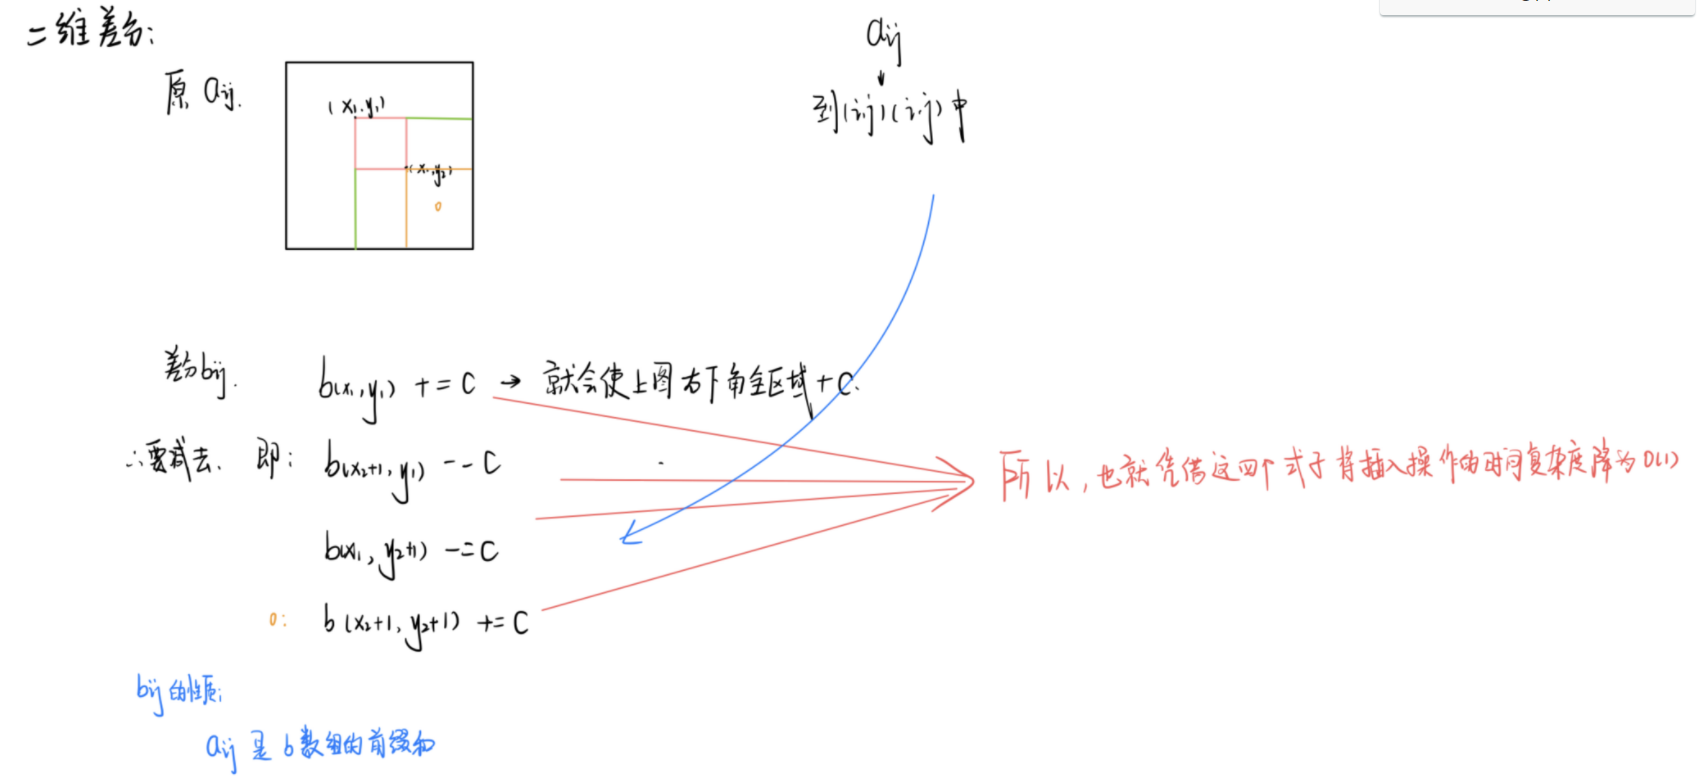 二维差分:
原 aij.
(x1,y1)
(x1,y2)
0
aij
到(i,j)(i,j)中
差分bij.
b(x1,y1) += C → 就会使上图右下角全区域+C.
∴要减去. 即: b(x2+1,y1) -= C
b(x1,y2+1) -= C
0: b(x2+1,y2+1) += C
所以,也就凭借这四个式子将插入操作的时间复杂度降为O(1)
bij的性质:
aij 是 b数组的前缀和